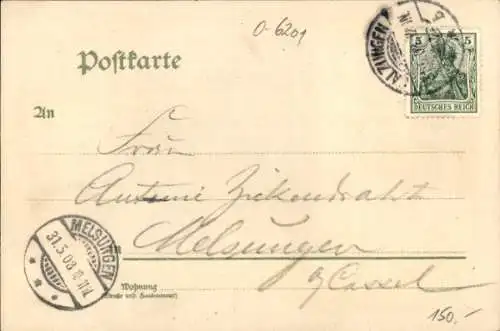 O-6201
Postkarte
5 5
DEUTSCHES REICH
An
Frau
Antonie Zickendraht
in Melsungen
b/Cassel
MELSUNGEN
31.5.03
Wohnung
(Straße und Hausnummer)
150,-